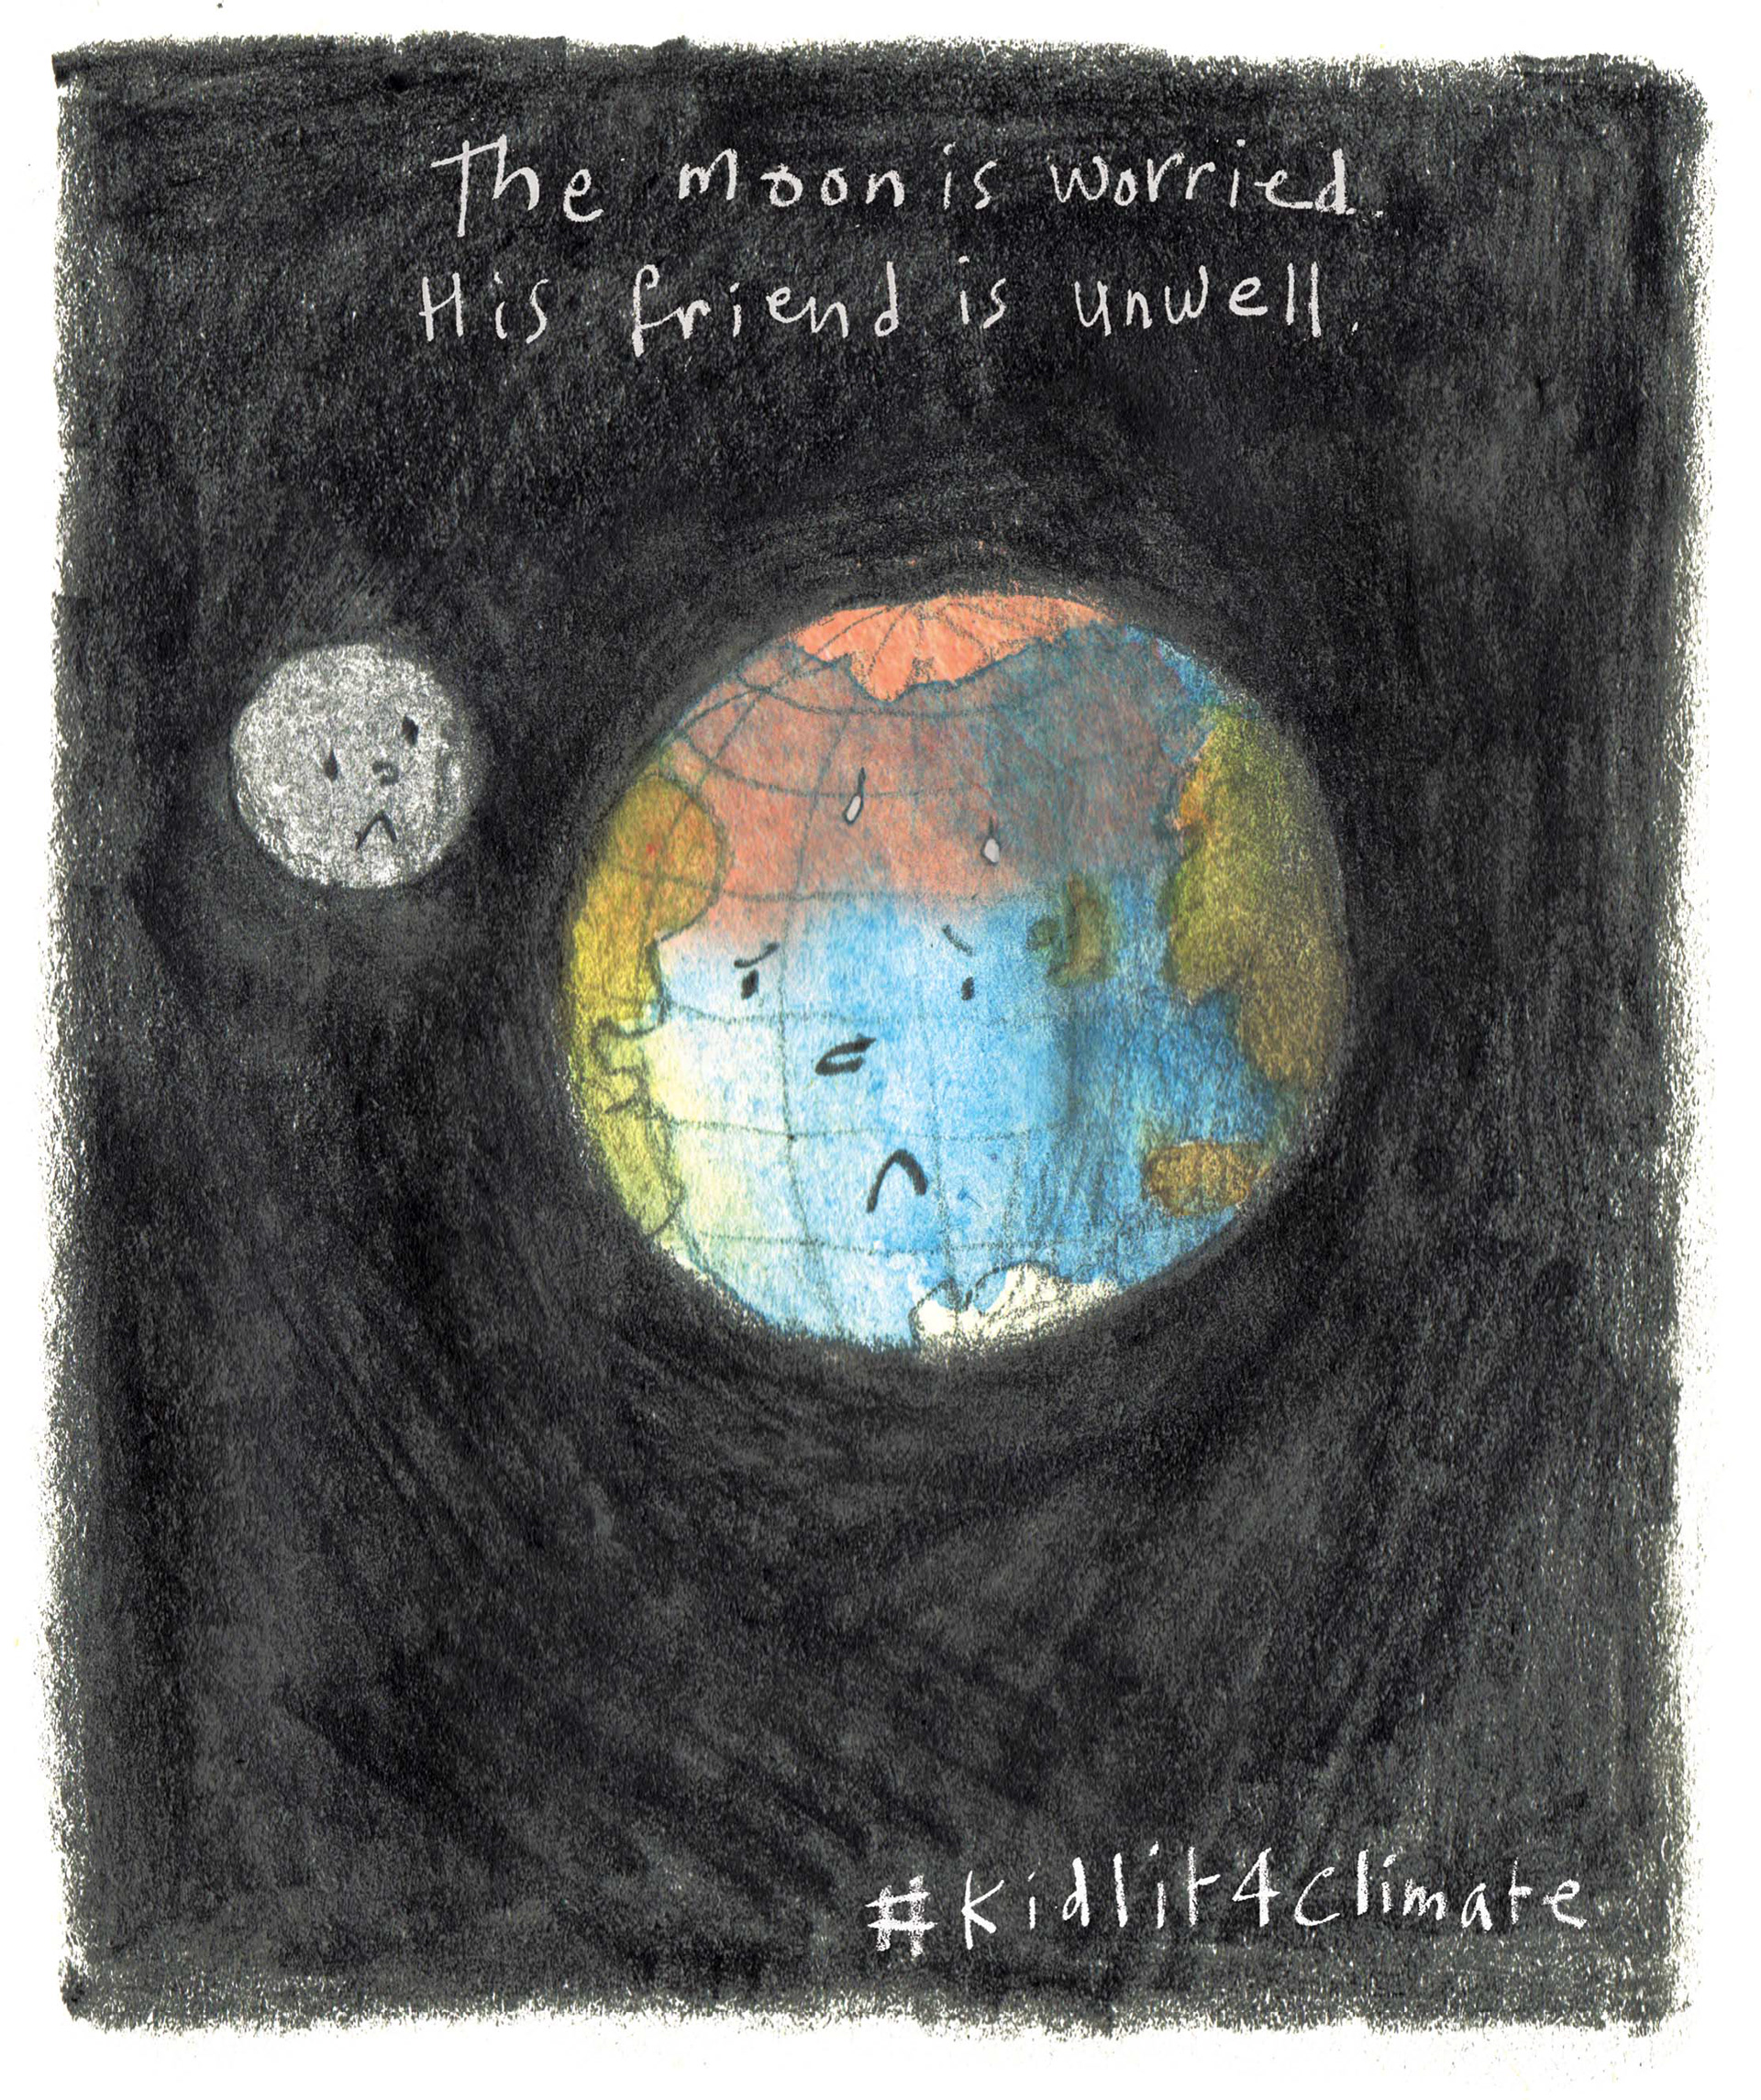 The Moon is worried.
His friend is unwell.
#kidlit4climate